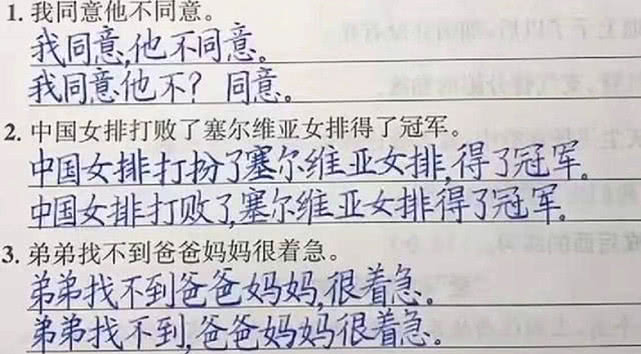 1. 我同意他不同意。
我同意,他不同意。
我同意他不？同意。
2. 中国女排打败了塞尔维亚女排得了冠军。
中国女排打扮了塞尔维亚女排,得了冠军。
中国女排打败了,塞尔维亚女排得了冠军。
3. 弟弟找不到爸爸妈妈很着急。
弟弟找不到爸爸妈妈,很着急。
弟弟找不到,爸爸妈妈很着急。